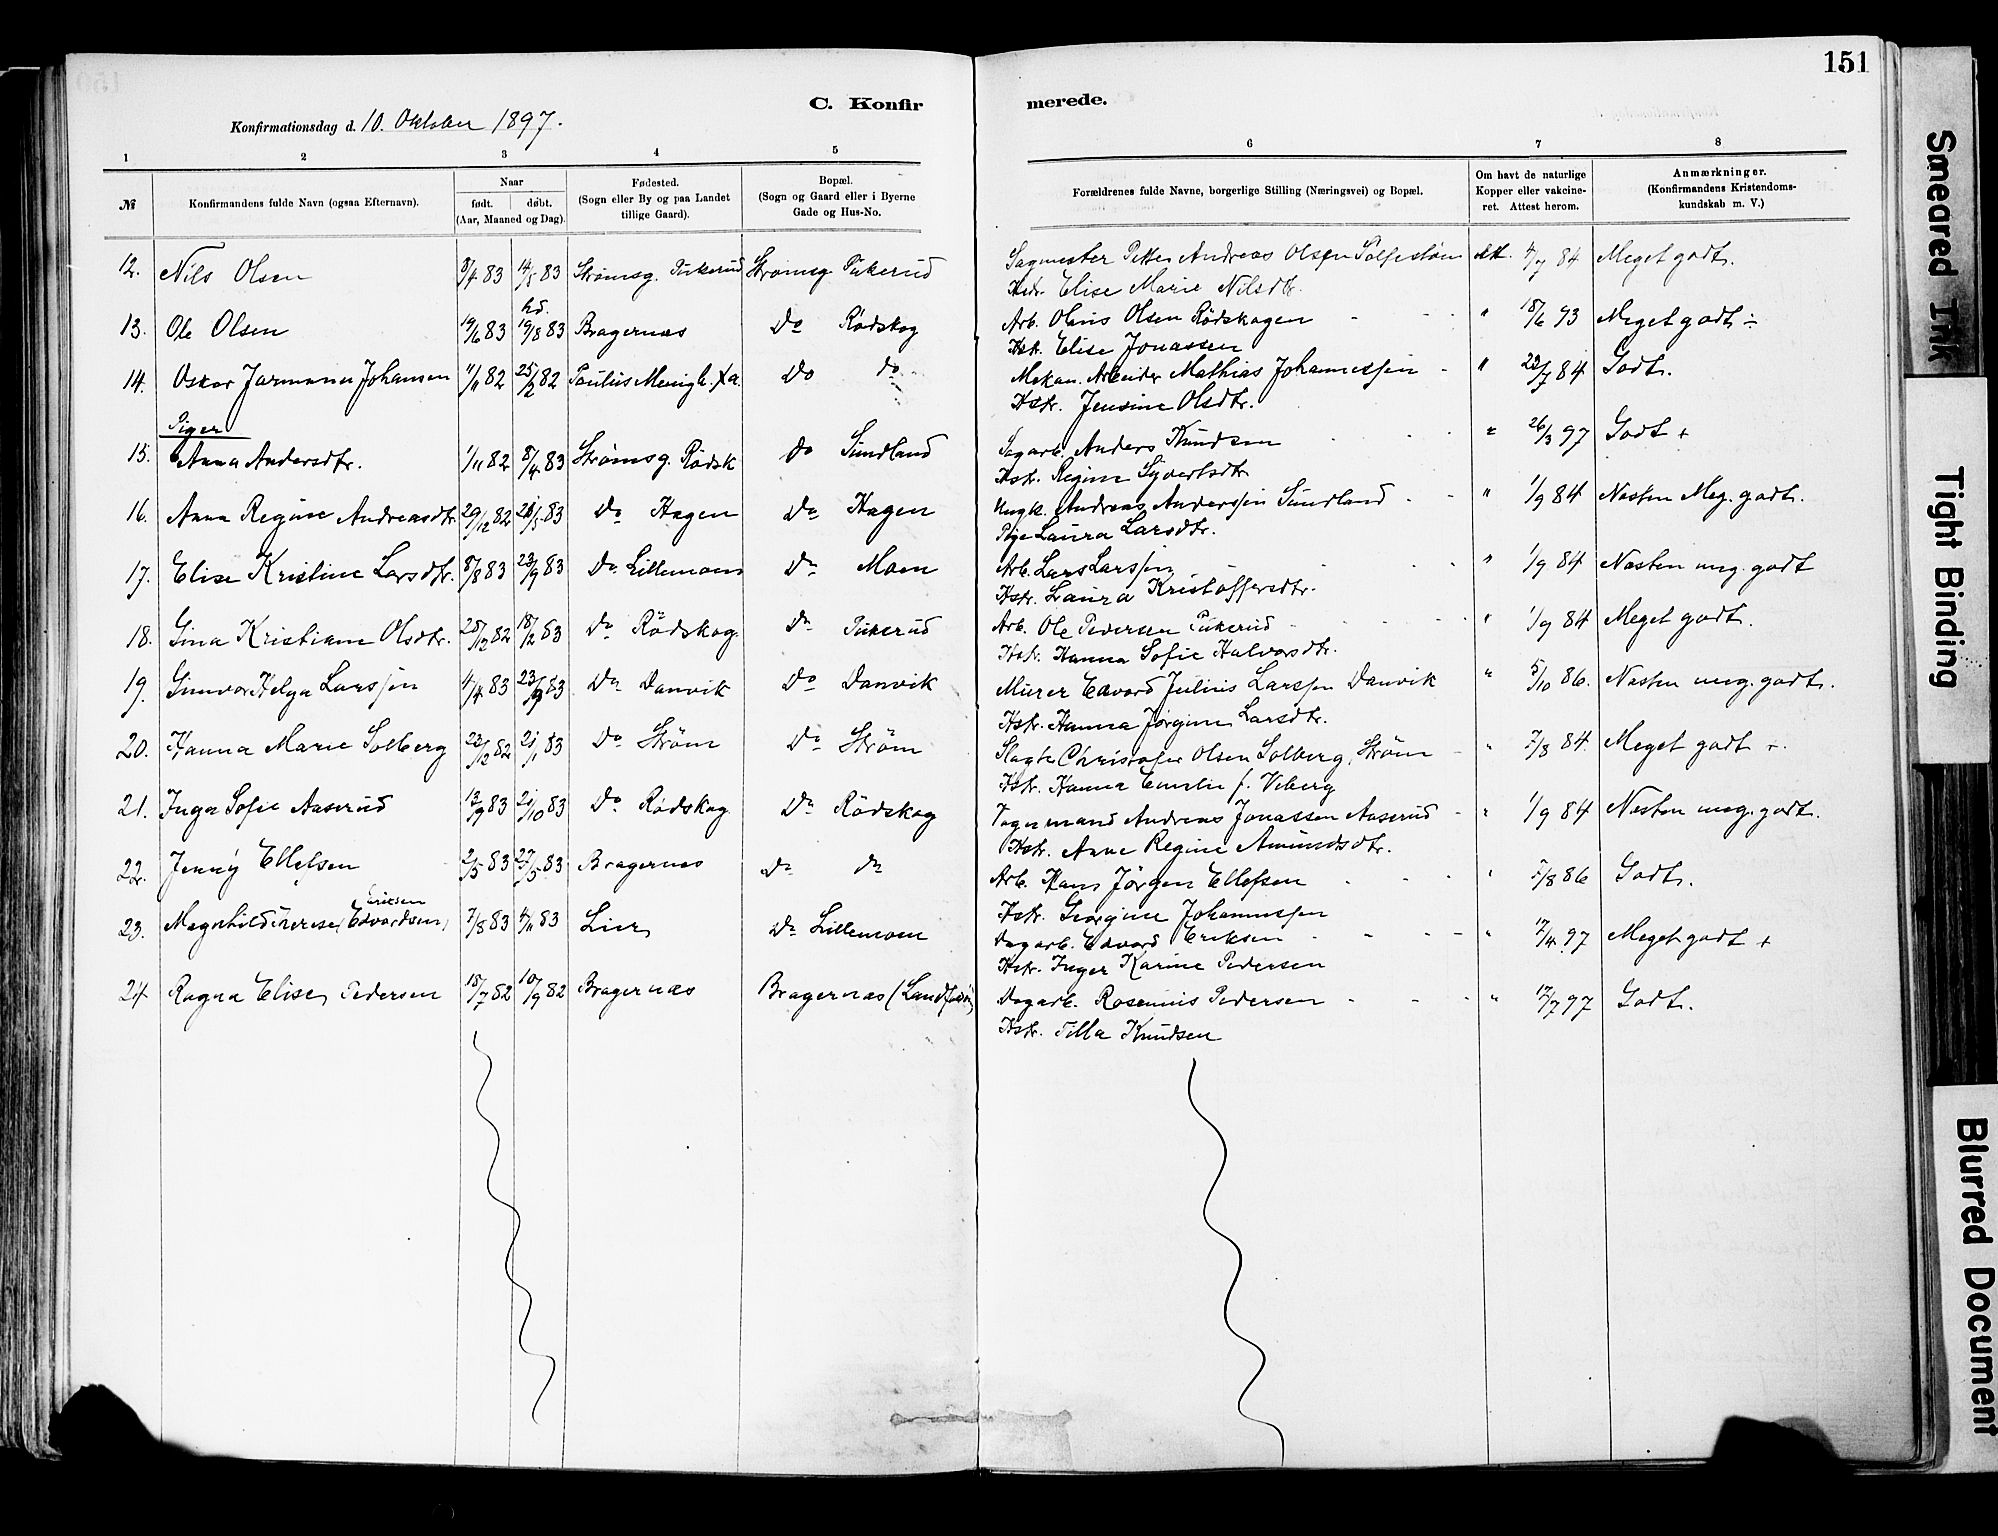 151
C. Konfir merede.
Konfirmationsdag d. 10. Oktober 1897.
1 2 3 4 5 6 7 8
№ Konfirmandens fulde Navn (ogsaa Efternavn). Naar født. døbt. (Aar, Maaned og Dag). Fødested. (Sogn eller By og paa Landet tillige Gaard). Bopæl. (Sogn og Gaard eller i Byerne Gade og Hus-No. Forældrenes fulde Navne, borgerlige Stilling (Næringsvei) og Bopæl. Om havt de naturlige Kopper eller vakcineret. Attest herom. Anmærkninger. (Konfirmandens Kristendomskundskab m. V.)
12. Nils Olsen 3/4 83 14/5 83 Strømsg. Pukerud Strømsg Pukerud Sagmester Petter Andreas Olsen att. 4/7 84 Meget godt.
Elise Marie Nilsdtr.
hd.
13. Ole Olsen 19/6 83 19/8 83 Bragernæs Do Rødskog Arb. Olaus Olsen Rødskogen " 18/6 93 Meget godt ÷
Hstr. Elise Jonassen
14. Oskar Jarmann Johansen 11/11 82 25/12 82 Paulus Menigh. Xa Do do Mekan. Arbeider Mathias Johannessen " 22/7 84 Godt.
Hstr. Jensine Olsdtr.
Piger
15. Anna Andersdtr. 1/11 82 8/4 83 Strømsg. Rødsk Do Sundland Sagarb. Anders Knudsen " 26/3 97 Godt +
Hstr. Regine Syvertsdtr
16. Anna Regine Andreasdtr. 29/12 82 26/3 83 Do Hagen Do Hagen Ungk. Andreas Anderssen Sundland " 1/9 84 Næsten Meg. godt.
Pige Laura Larsdtr.
17. Elise Kristine Larsdtr. 8/8 83 23/9 83 Do Lillemoen Do Moen Arb. Lars Larssen " 1/9 84 Næsten meg. godt
Hstr. Laura Kristoffersdtr.
18. Gina Kristiane Olsdtr. 25/12 82 18/2 83 Do Rødskog. Do Pukerud Arb. Ole Pedersen Pukerud " 1/9 84 Meget godt.
Hstr. Hanna Sofie Halvorsdtr.
19. Gunvor Helga Larssen 4/4 83 23/9 83 Do Danvik Do Danvik Murer Edvard Julius Larssen Danvik " 5/10 86. Næsten meg. godt.
Hstr. Hanna Jørgine Larsdtr.
20. Hanna Marie Solberg 23/12 82 21/1 83 Do Strøm Do Strøm Slagter Christofer Olsen Solberg, Strøm " 7/8 84. Meget godt ÷.
Hstr. Hanna Emelie f. Viberg
21. Inga Sofie Aaserud 13/9 83 21/10 83 Do Rødskog Do Rødskog Vognmand Andreas Jonassen Aaserud " 1/9 84 Næsten meg. godt.
Hstr. Anne Regine Amundsdtr.
22. Jenny Ellefsen 2/5 83 27/5 83 Bragernes Do do Arb. Hans Jørgen Ellefsen " 7/8 86 Godt.
Hstr. Georgine Johannessen
Eriksen
23. Magnhild Nerese (Edvardsen) 7/8 83 4/11 83 Lier Do Lillemoen Dagarb. Edvard Eriksen " 17/4 97 Meget godt +
Hstr. Inger Karine Pedersen
24 Ragna Elise Pedersen 18/7 82 10/9 82 Bragernæs Bragernæs Dagarb. Rosenius Pedersen " 17/7 97 Godt.
Hstr. Tilla Knudsen
Smeared Ink
Tight Binding
Blurred Document